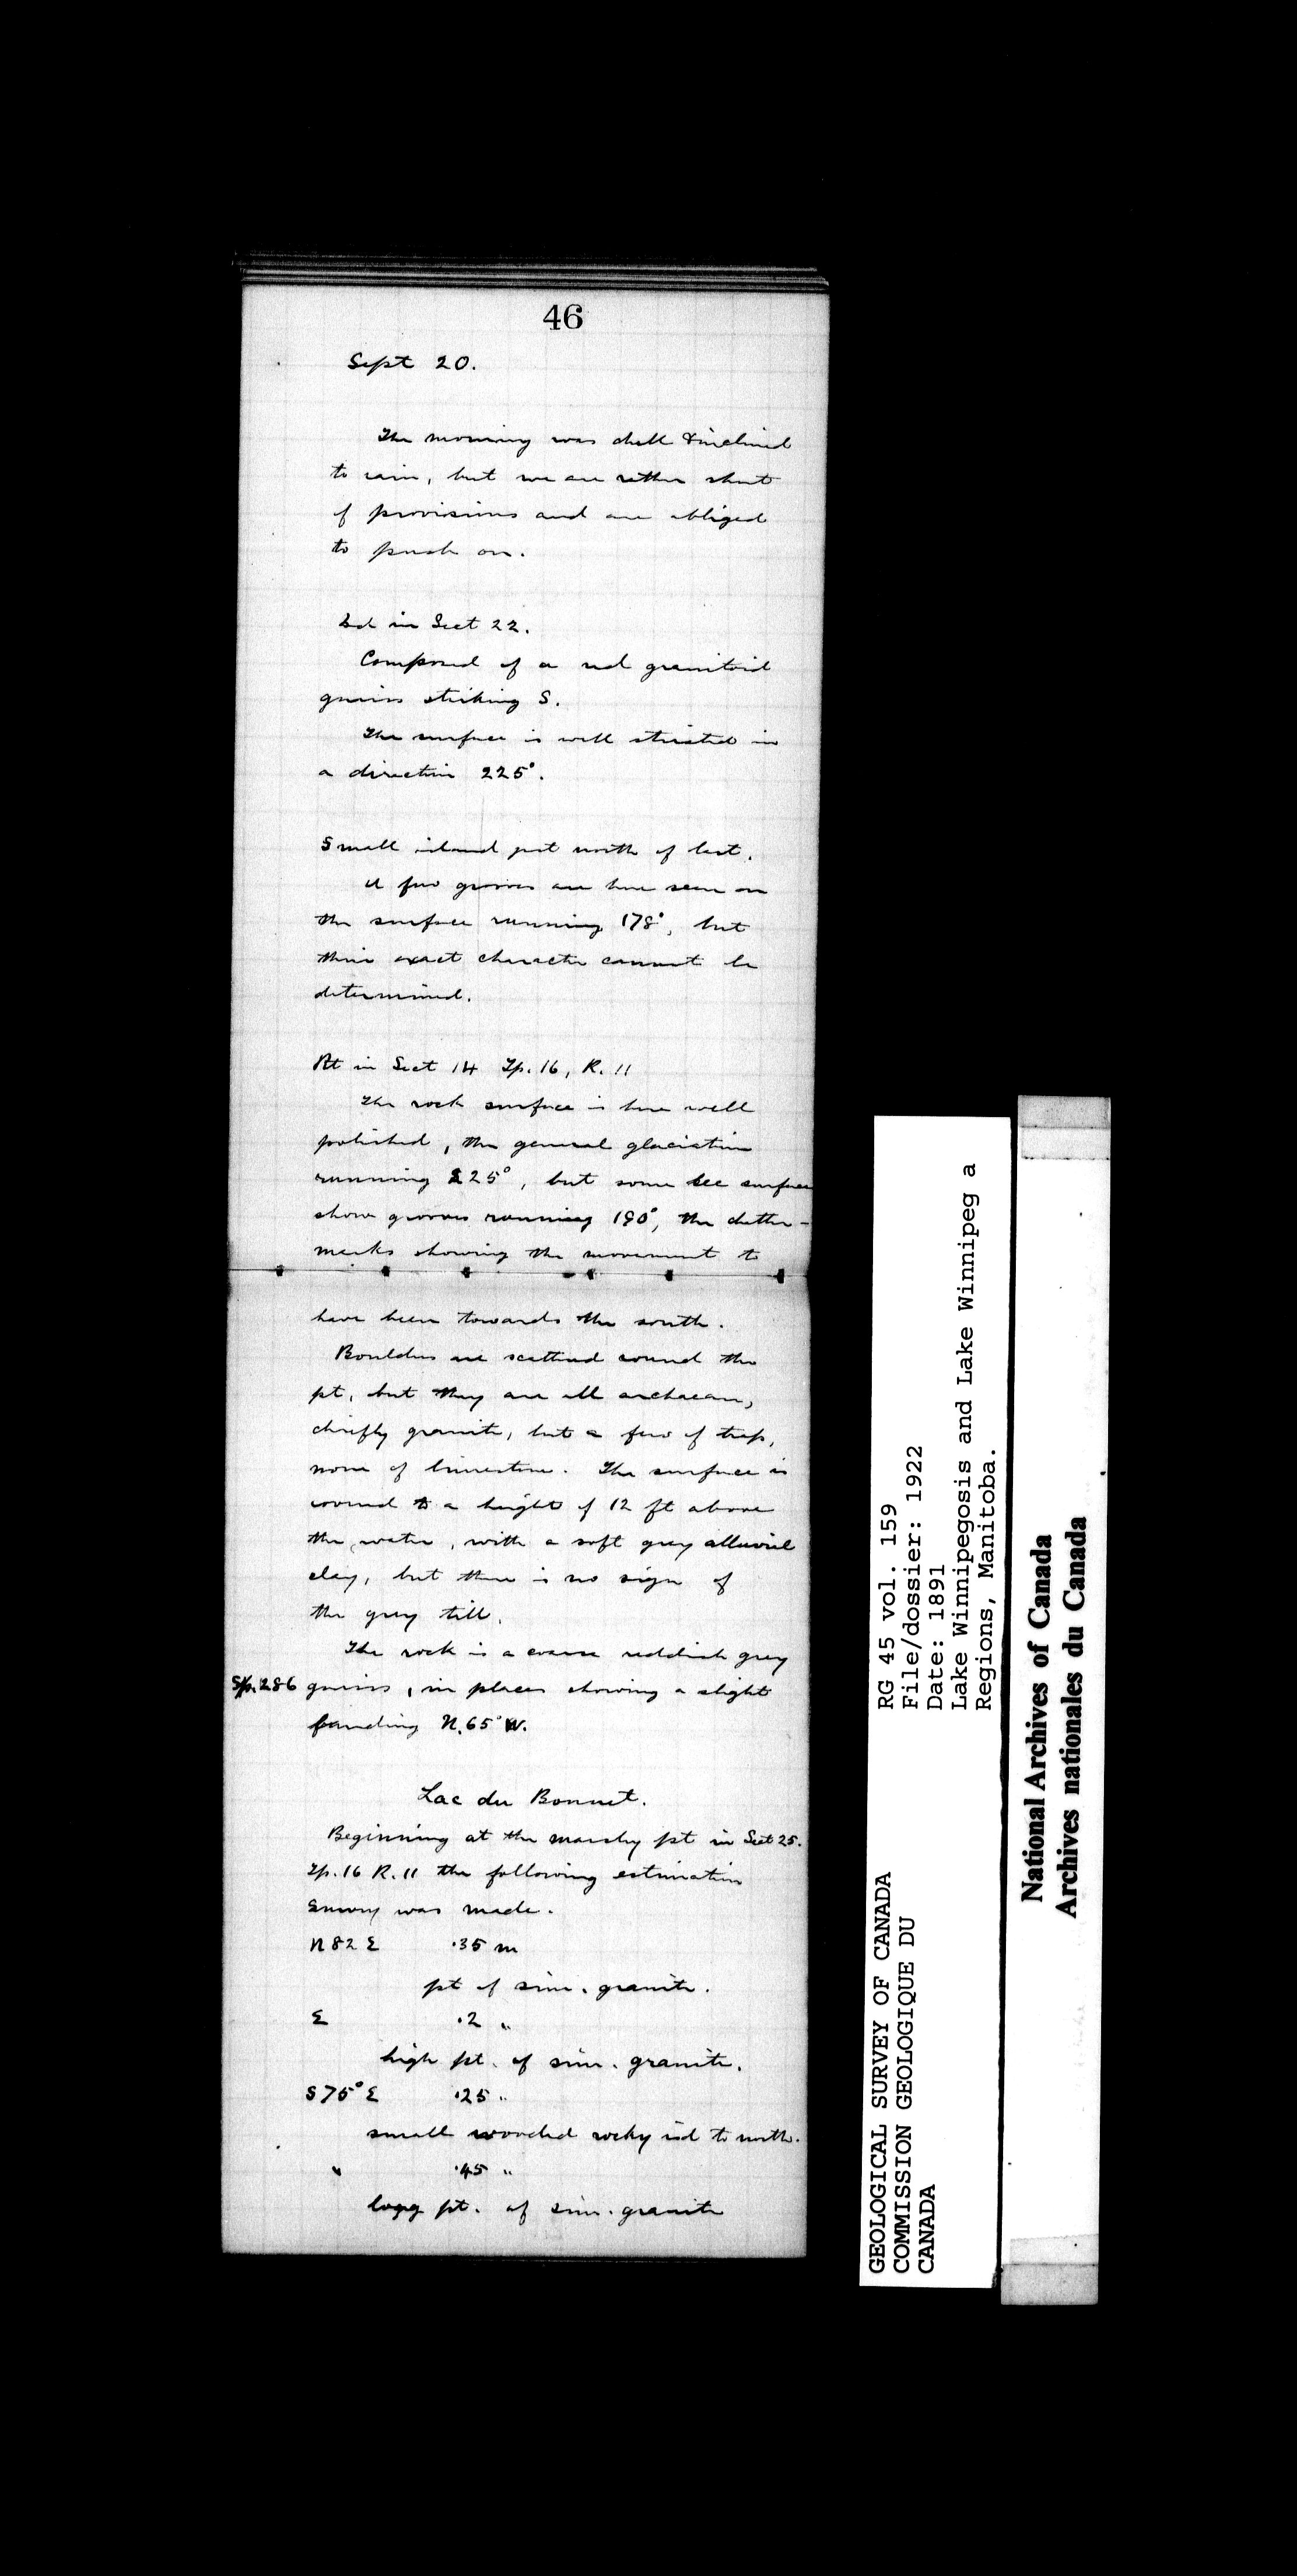 46
Sept 20.
The morning was dull & inclined
to rain, but we are rather short
of provisions and are obliged
to push on.
Isd in Sect 22.
Composed of a red granitoid
gneiss striking S.
The surface is well striated in
a direction 225°.
Small island just north of last.
A few grooves are here seen on
the surface running 178°, but
their exact character cannot be
determined.
Pt in Sect 14 Tp. 16, R. 11
The rock surface is here well
polished, the general glaciation
running 225°, but some lee surfaces
show grooves running 190°, the chatter-
marks showing the movement to
have been towards the south.
Boulders are scattered round the
pt, but they are all archaean,
chiefly granite, but a few of trap,
none of limestone. The surface is
covered to a height of 12 ft above
the water, with a soft grey alluvial
clay, but there is no sign of
the grey till.
The rock is a coarse reddish grey
Sp. 286 gneiss, in places showing a slight
banding N. 65° W.
Lac du Bonnet.
Beginning at the marshy pt in Sect 25.
Tp. 16 R. 11 the following estimation
survey was made.
N 82 E .35 m
pt of sim. granite.
E .2 "
high pt. of sim. granite.
S 75° E .25 "
small wooded rocky isd to north.
" .45 "
long pt. of sim. granite
GEOLOGICAL SURVEY OF CANADA
COMMISSION GEOLOGIQUE DU
CANADA
RG 45 vol. 159
File/dossier: 1922
Date: 1891
Lake Winnipegosis and Lake Winnipeg a
Regions, Manitoba.
National Archives of Canada
Archives nationales du Canada